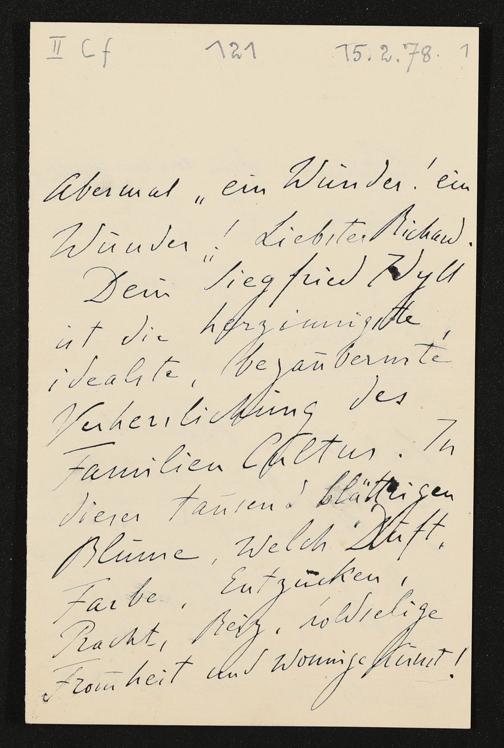 II Cf 121 15.2.78. 1
Abermal „ein Wunder! ein
Wunder„! Liebster Richard.
Dein Siegfried Idyll
ist die herzinnigste,
idealste, bezaubernste
Verherrlichung des
Familien Cultus. In
dieser tausend blättrigen
Blume, Welch Duft,
Farbe, Entzücken,
Pracht, Reiz, holdselige
Fromheit und wonnige Kunst!